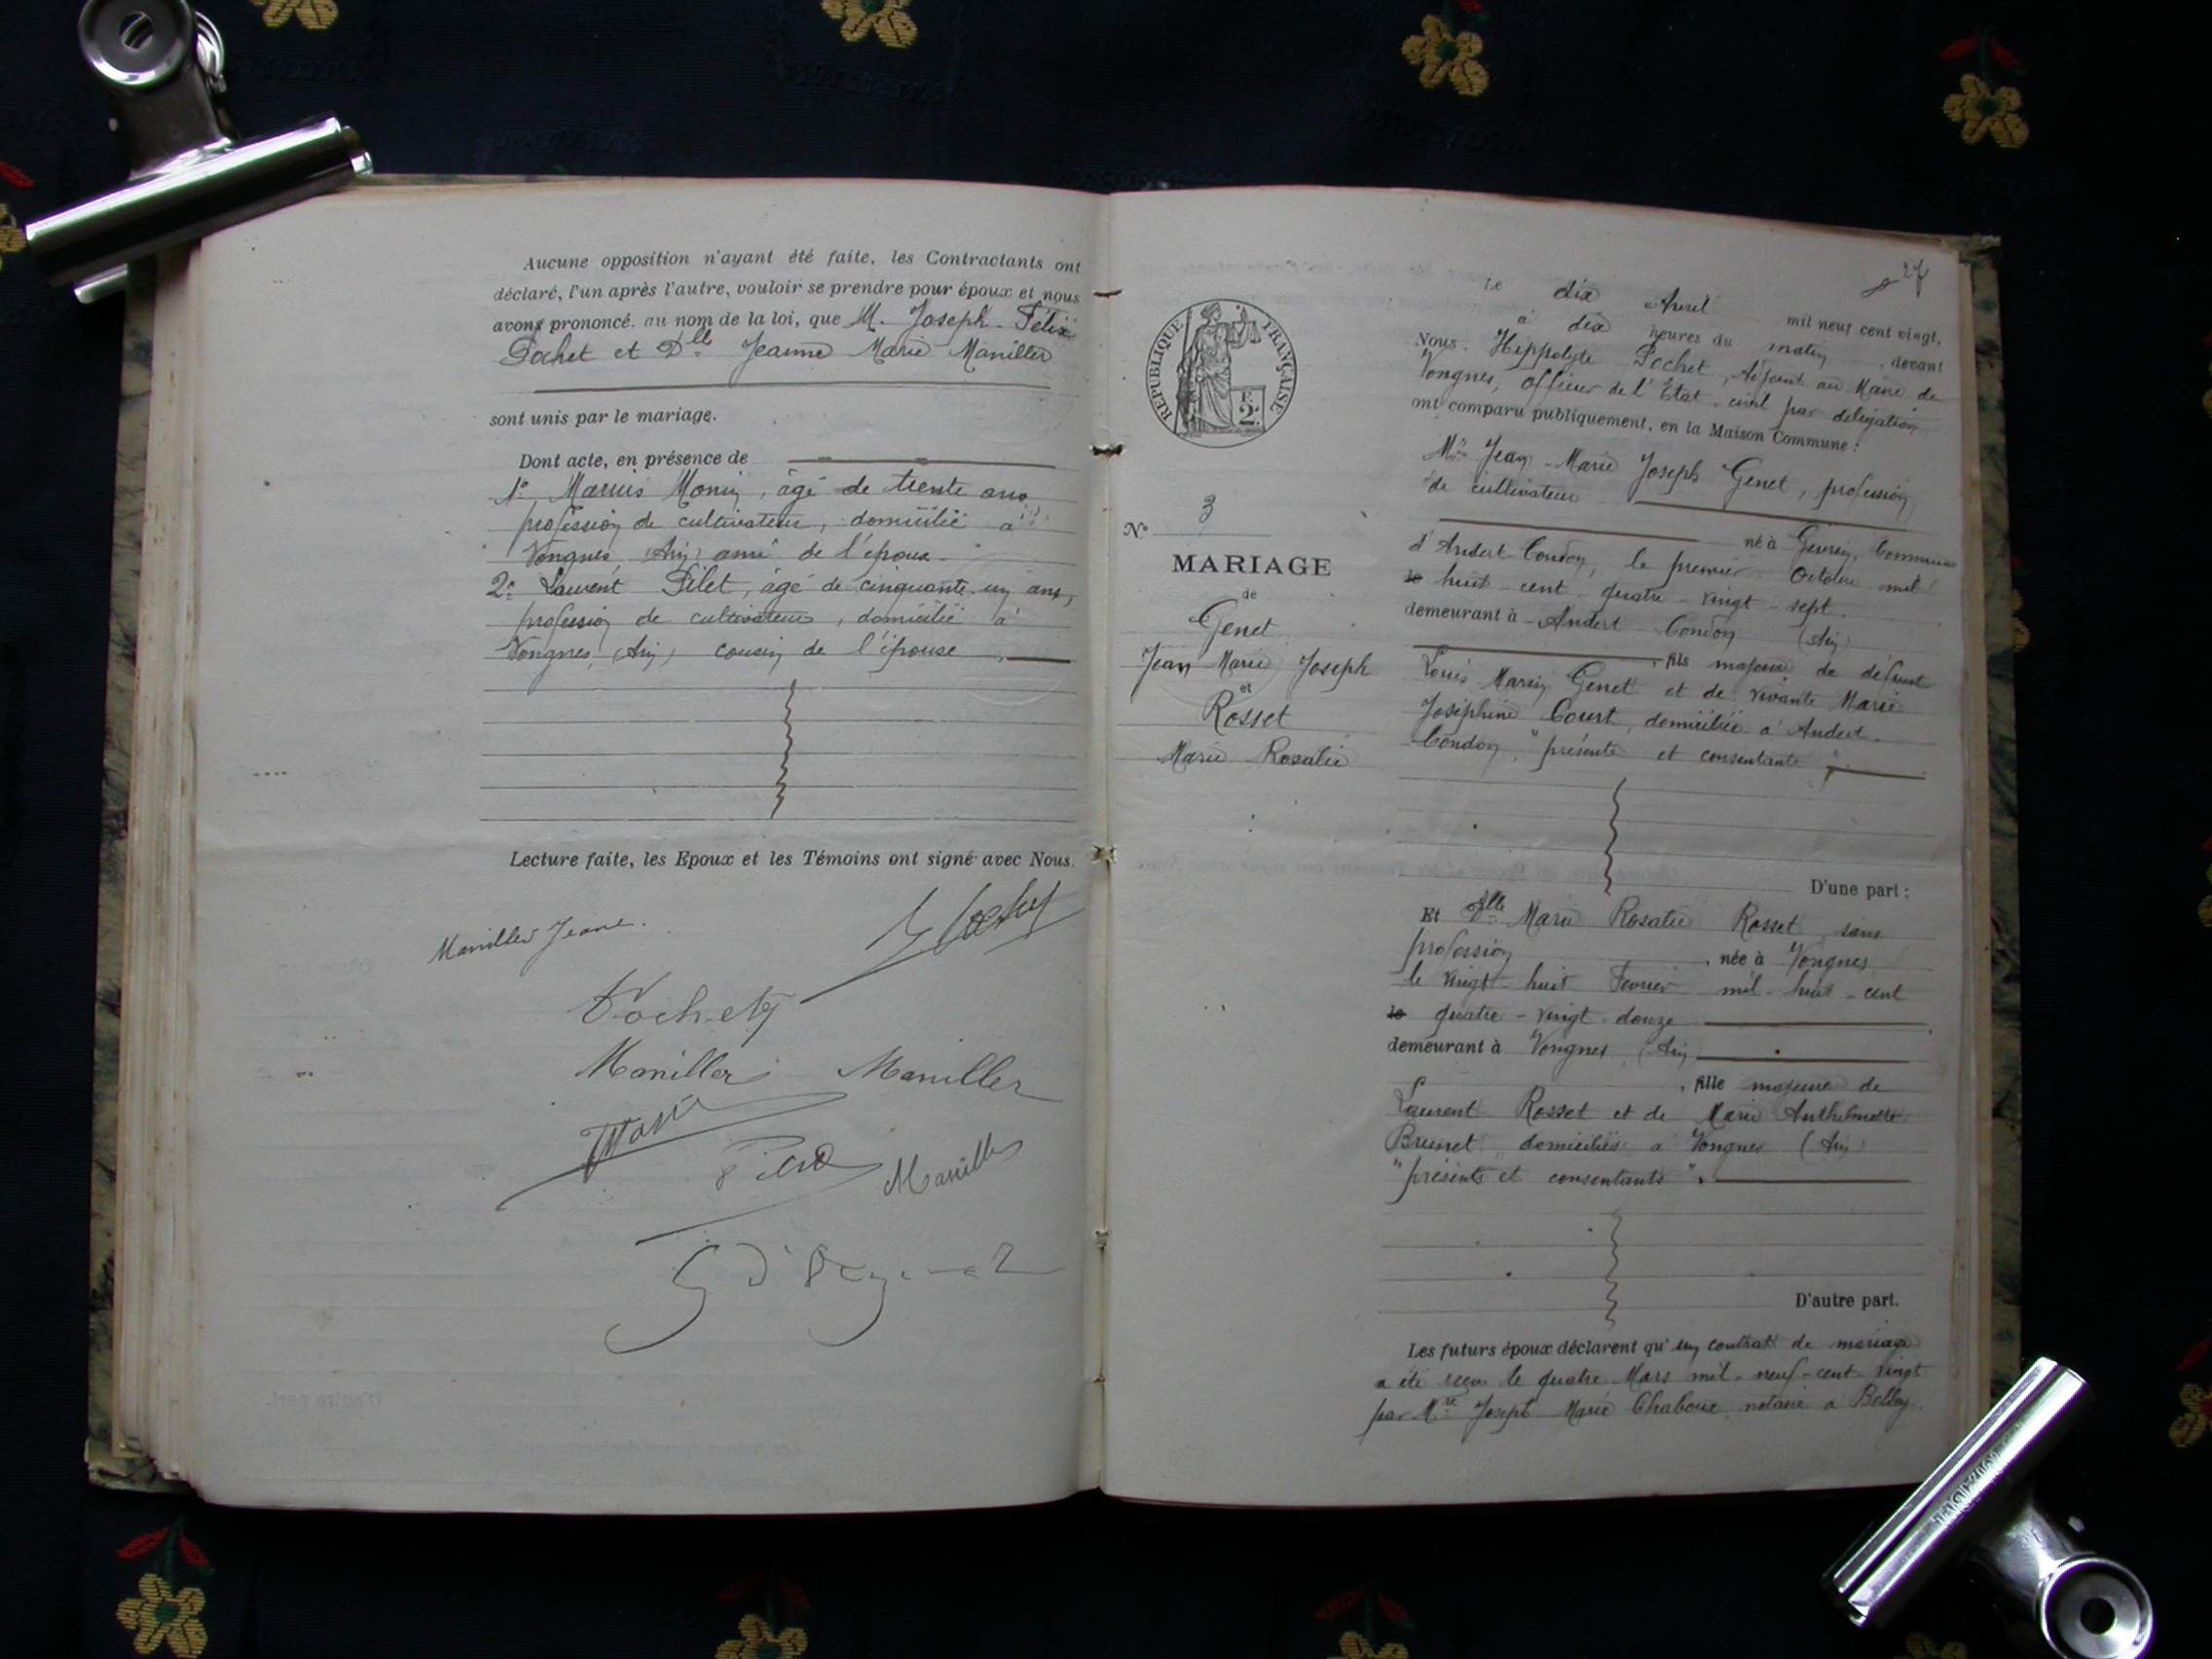 Aucune opposition n'ayant été faite, les Contractants ont
déclaré, l'un après l'autre, vouloir se prendre pour époux et nous
avons prononcé, au nom de la loi, que M. Joseph Félix
Pochet et Dlle Jeanne Marie Maniller
sont unis par le mariage.
Dont acte, en présence de
1º Marius Monin, âgé de trente ans
profession de cultivateur, domicilié à
Vongnes, (Ain) ami de l'époux.
2º Laurent Pilet, âgé de cinquante-un ans,
profession de cultivateur, domicilié à
Vongnes, (Ain) cousin de l'épouse.
Lecture faite, les Epoux et les Témoins ont signé avec Nous.
Maniller Jeane.
Maniller Maniller
Maniller
27
RÉPUBLIQUE FRANÇAISE
2
Nº 3
MARIAGE
de
Genet
Jean Marie Joseph
et
Rosset
Marie Rosalie
Le dix Avril mil neuf cent vingt,
à dix heures du matin, devant
Nous, Hippolyte Pochet, Adjoint au Maire de
Vongnes, officier de l'Etat-civil par délégation
ont comparu publiquement, en la Maison Commune :
Mr Jean-Marie Joseph Genet, profession
de cultivateur
né à Gevrin, Commune
d'Andert-Condon, le premier Octobre mil
huit-cent-quatre-vingt-sept
demeurant à Andert Condon (Ain)
, fils majeur de défunt
Louis Marin Genet et de vivante Marie
Joséphine Court, domiciliée à Andert-
Condon, "présente et consentante".
D'une part :
Et Dlle Marie Rosalie Rosset, sans
profession, née à Vongnes
le vingt-huit Février mil-huit-cent
quatre-vingt-douze
demeurant à Vongnes (Ain)
, fille majeure de
Laurent Rosset et de Marie Anthelmette
Brunet, domiciliés à Vongnes (Ain)
"présents et consentants".
D'autre part.
Les futurs époux déclarent qu'un contrat de mariage
a été reçu le quatre Mars mil-neuf-cent vingt
par Mtre Joseph Marie Chaboux, notaire à Belley.